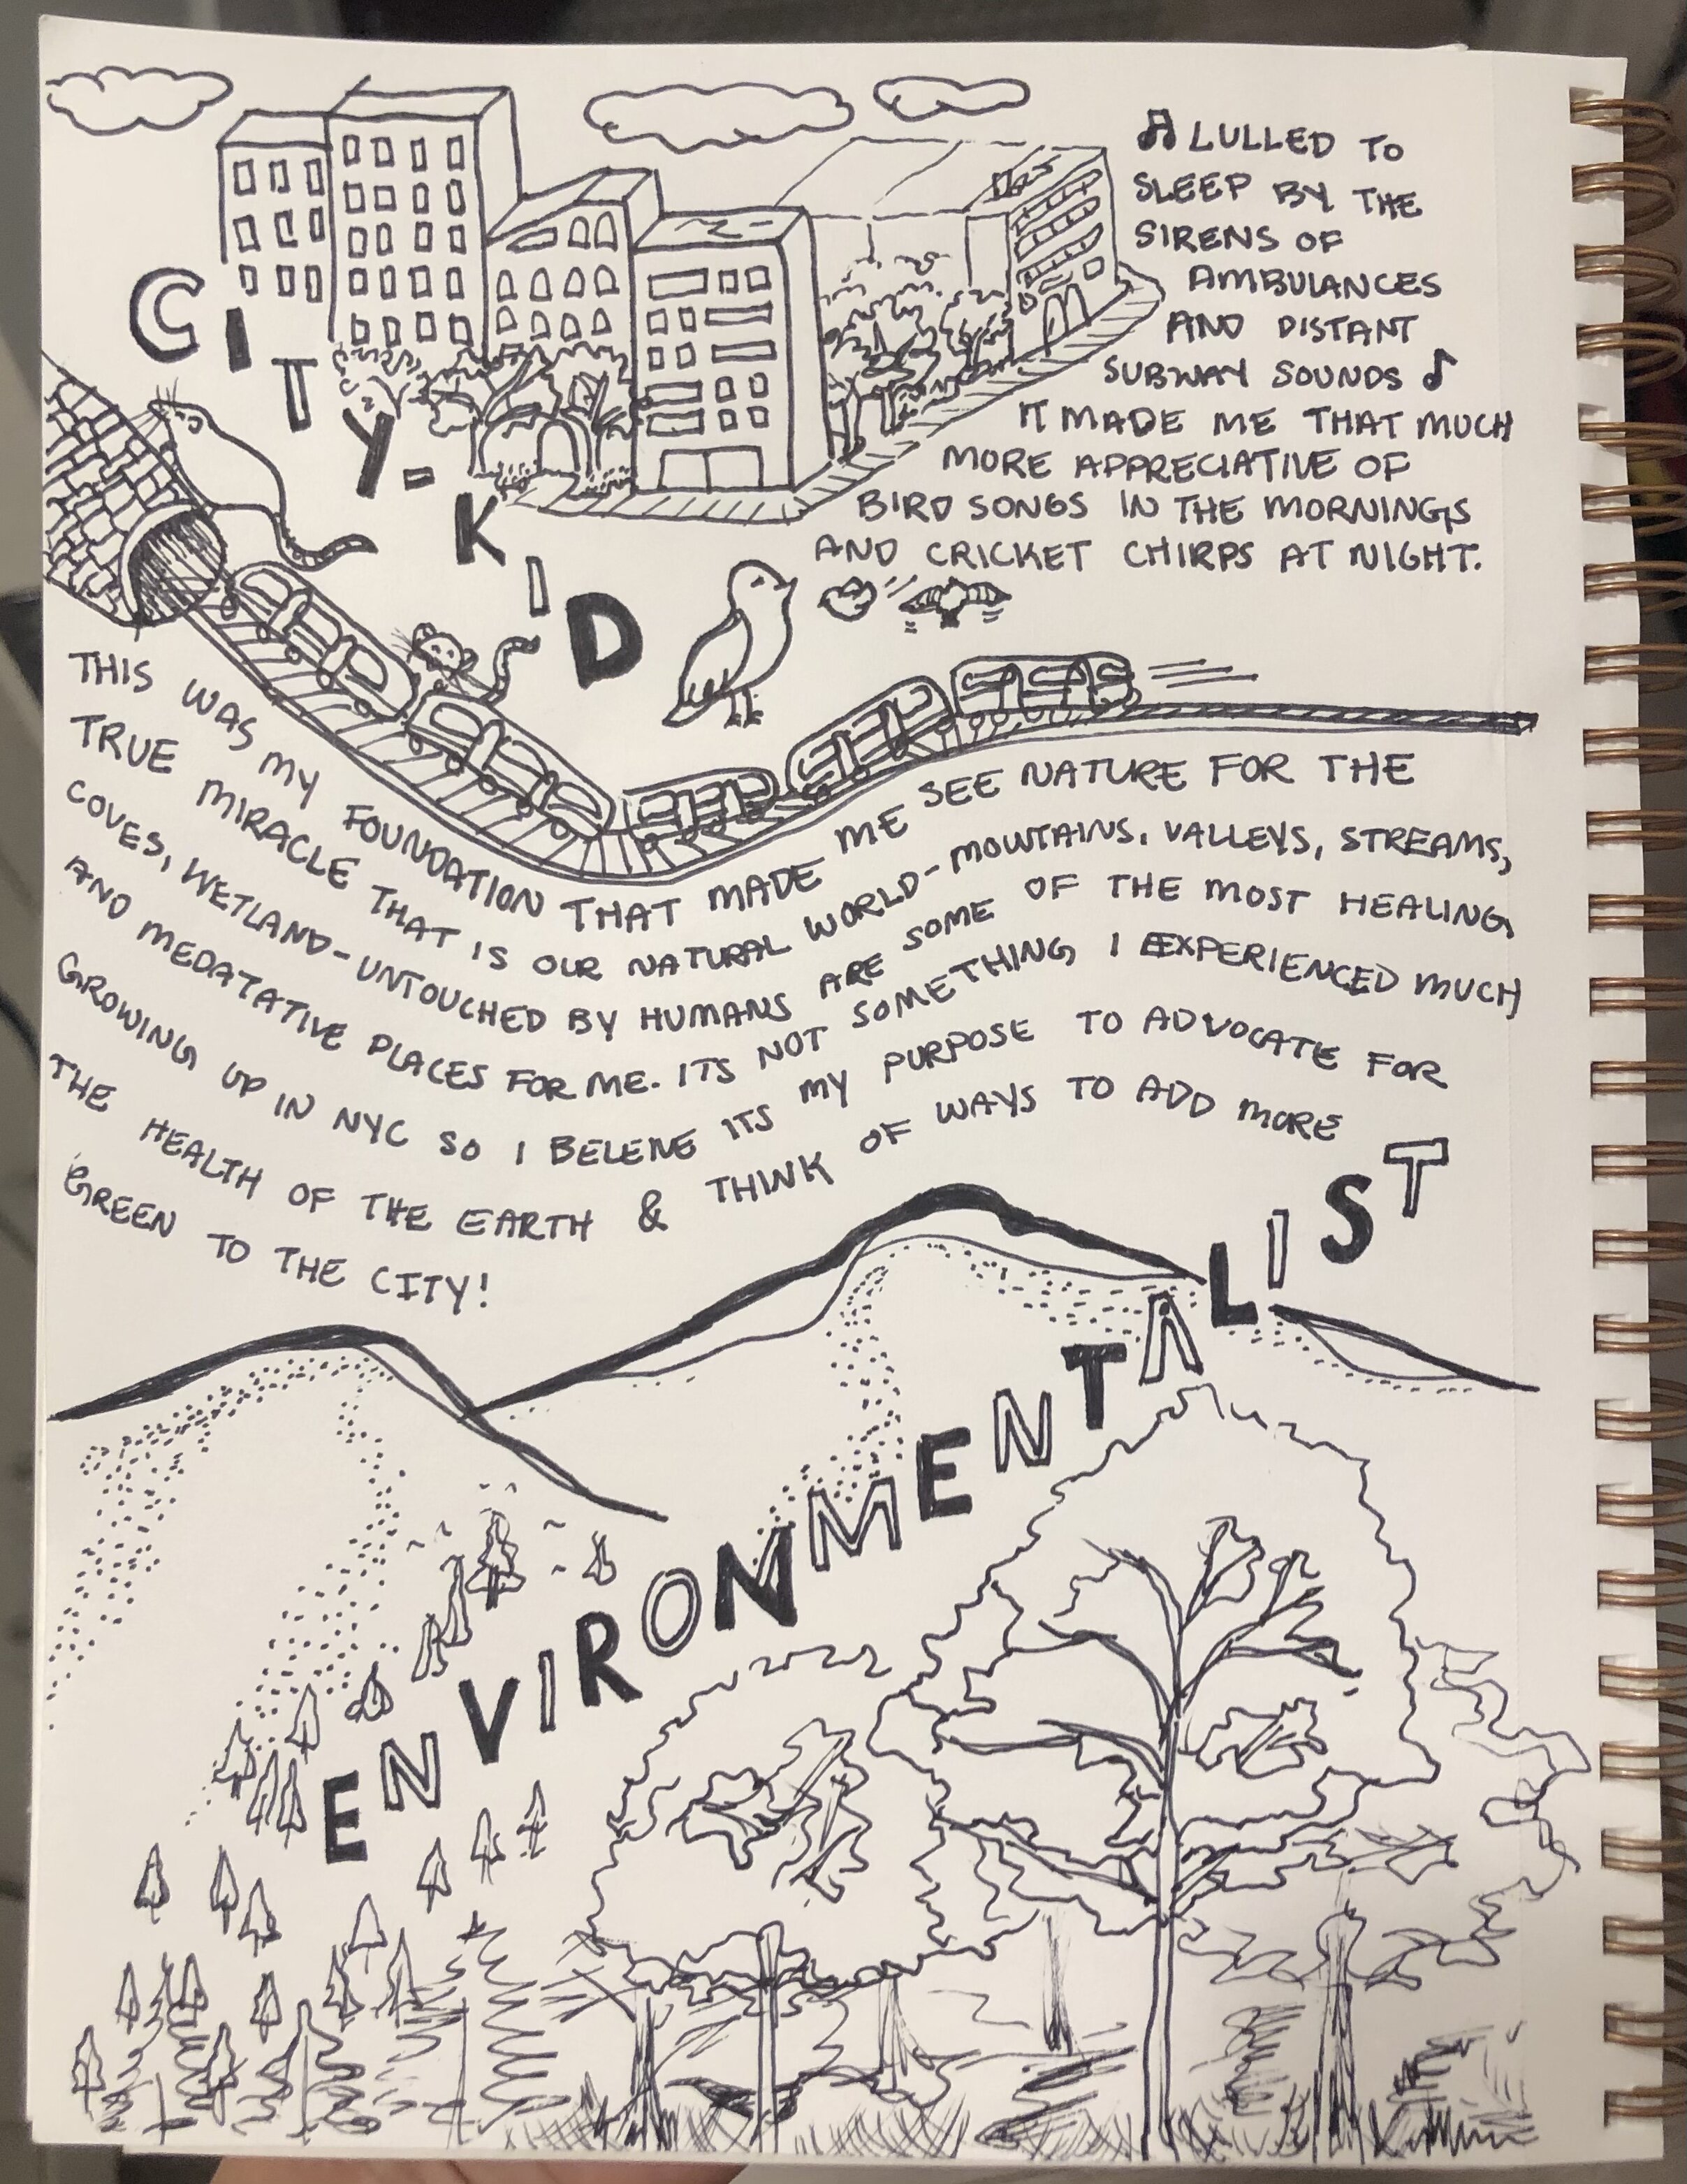 CITY-KID
♫ LULLED TO
SLEEP BY THE
SIRENS OF
AMBULANCES
AND DISTANT
SUBWAY SOUNDS ♪
IT MADE ME THAT MUCH
MORE APPRECIATIVE OF
BIRD SONGS IN THE MORNINGS
AND CRICKET CHIRPS AT NIGHT.
THIS WAS MY FOUNDATION THAT MADE ME SEE NATURE FOR THE
TRUE MIRACLE THAT IS OUR NATURAL WORLD - MOUNTAINS, VALLEYS, STREAMS,
COVES, WETLAND - UNTOUCHED BY HUMANS ARE SOME OF THE MOST HEALING
AND MEDATATIVE PLACES FOR ME. ITS NOT SOMETHING I EXPERIENCED MUCH
GROWING UP IN NYC SO I BELEIVE ITS MY PURPOSE TO ADVOCATE FOR
THE HEALTH OF THE EARTH & THINK OF WAYS TO ADD MORE
GREEN TO THE CITY!
ENVIRONMENTALIST